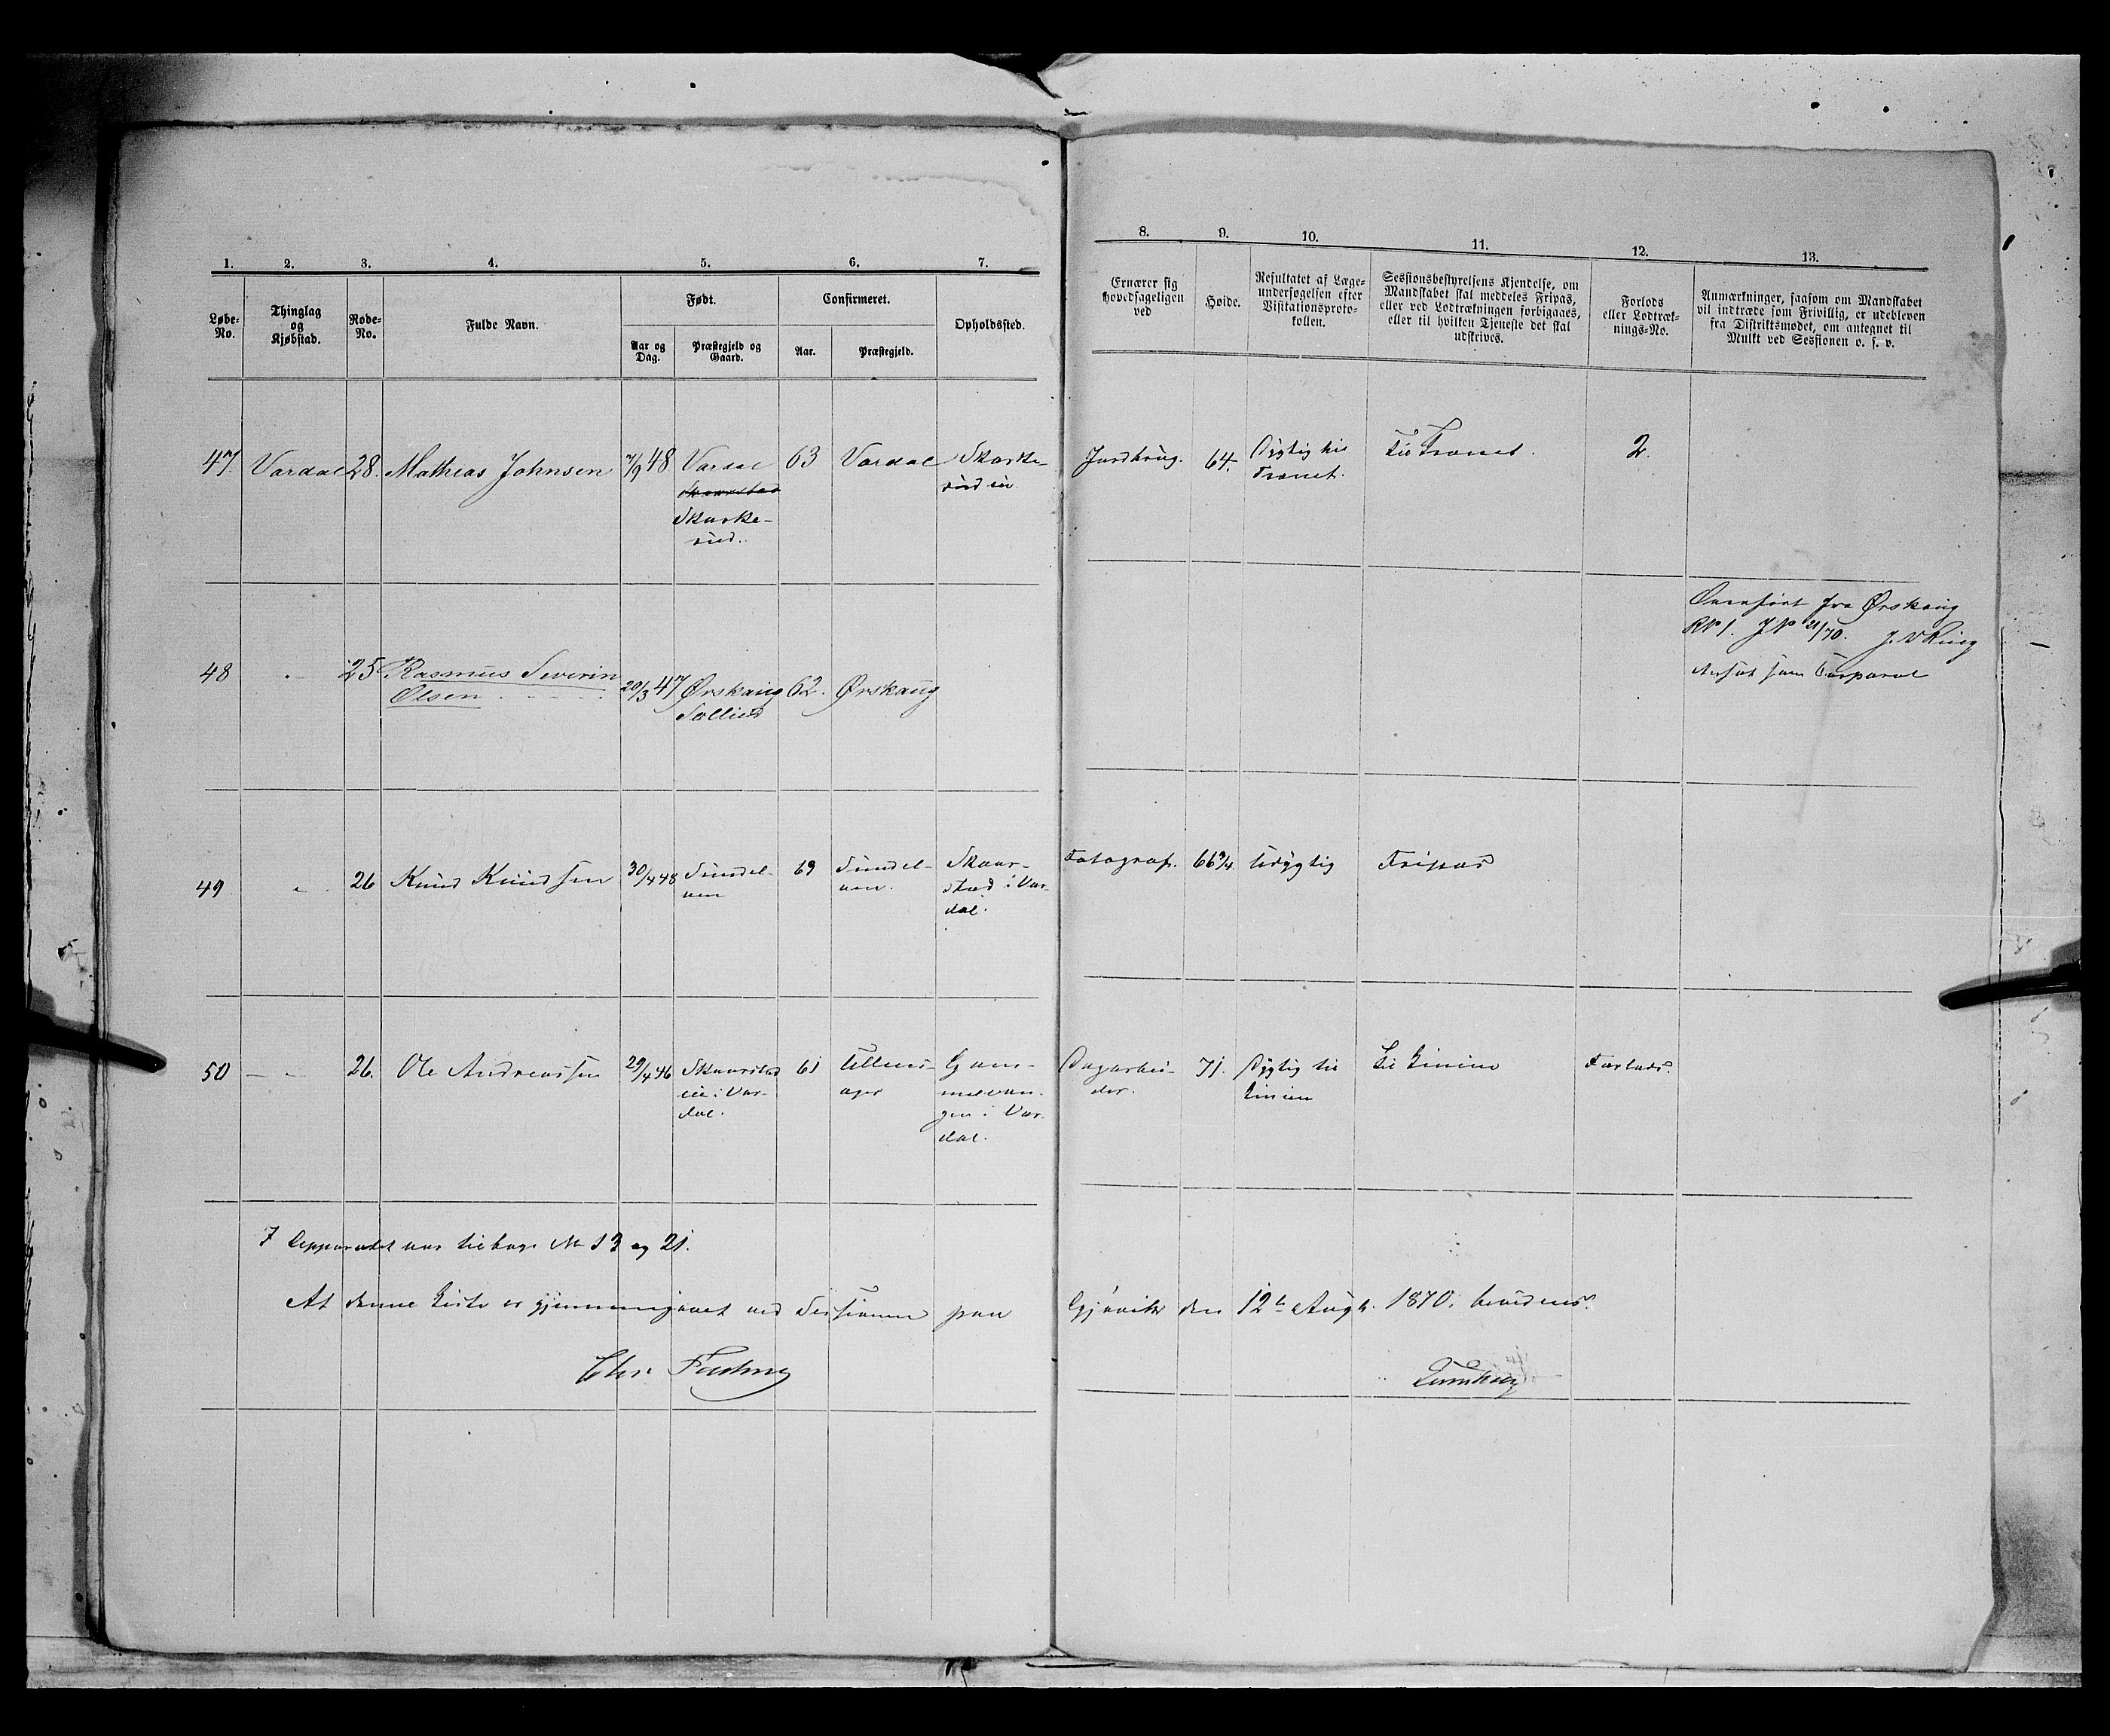 1. 2. 3. 4. 5. 6. 7.
Løbe-No. Thinglag og Kjøbstad. Rode-No. Fulde Navn. Født. Confirmeret. Opholdssted.
Aar og Dag. Præstegjeld og Gaard. Aar. Præstegjeld.
8. 9. 10. 11. 12. 13.
Ernærer sig hovedsageligen ved
Høide.
Resultatet af Læge-
undersøgelsen efter
Visitationsproto-
kollen.
Sessionsbestyrelsens Kjendelse, om
Mandskabet skal meddeles Fripas,
eller ved Lodtrækningen forbigaaes,
eller til hvilken Tjeneste det skal
udskrives.
Forlods
eller Lodtræk-
nings-No.
Anmærkninger, saasom om Mandskabet
vil indtræde som Frivillig, er udebleven
fra Distriktsmødet, om antegnet til
Mulkt ved Sessionen o. s. v.
47 Vardal 28. Mathias Johnsen 7/9 48 Vardal 63 Vardal Skarke-
Skarke-
rud.
Jordbrug. 64. Dygtig til
Trænet.
Til Trænet. 2.
48 " 25 Rasmus Severin
Olsen
20/3 47 Ørskaug 62. Ørskaug
Overført fra Ørskaug
RN 1. JN 21/70. J. V Ring
Ansat som Corporal
49 " 26 Knud Knudsen 30/4 48 Sundel-
ven
63 Sundel-
ven.
Skaar-
stad i Var-
dal.
Fotograf. 66 3/4. Udygtig Fripas
50 " 26. Ole Andreassen 29/4 46 Skaarstad
eie i Var-
dal.
61 Ullens-
ager
Gam-
mevan-
gen i Var-
dal.
Dagarbei-
der.
71. Dygtig til
Linien
Til Linien Forlods.
7 Opparadet var tilbage No 13 og 21.
At denne Liste er gjennemgaaet ved Sessionen paa Gjøvik den 12te Augt. 1870, bevidnes.
Chr. Fasting